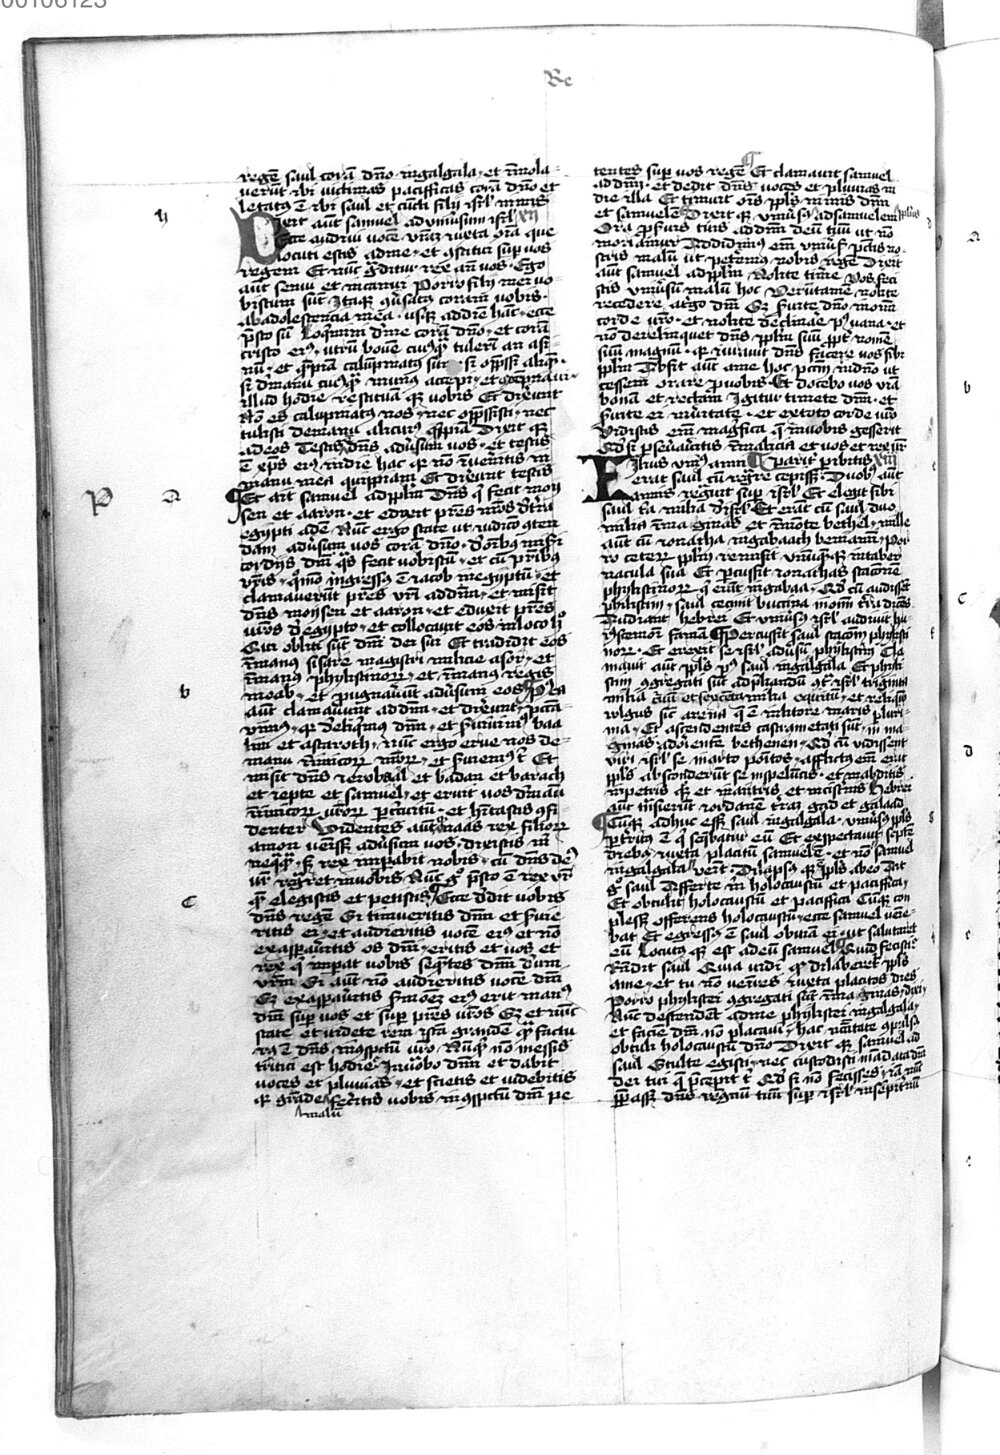 00106123
Re
regē saul corā dño in galgala, et īmola
verūt ibi victimas pacifficas corā dño et
letatꝰ ē ibi saul et cūcti filij isrl' nimis
Dixit aūt samuel ad vniuersum isrl' xii
Ecce audiui vocē vrām iuxta oīa que
locuti estis ad me et ꝯstitui sup vos
regem Et nūc g̃ditur rex an̄ vos Ego
aūt senui et incanui Porro filij mei vo
biscum sūt Itaqꝫ ꝯuersatꝰ coram vobis
ab adolescencia mea vsqꝫ ad diē hāc ecce
p̄sto sū Loq̄mini d'me corā dño et corā
cristo eiꝰ vtrū bouē cuiusq̄ tulerī an asi
nū et q̄mpiā calūpniatus sim si opp̄ssi aliqͫ
si d' manu cuiusq̄ munus accepi et
illud hodie restituā qꝫ vobis Et dixerūt
Nō es calūpniatus nos nec opp̄ssisti nec
tulisti de manu alicuiꝰ q̄mpiā Dixit qꝫ
ad eos Testis dñs aduersum vos et testis
ē xp̄s eiꝰ in die hac qꝫ nō īueneritis in
manu mea quippiam Et dixerūt testis
¶Et ait samuel ad pplm Dñs q̄ fecit moy
sen et aaron et eduxit p̄res nr̄os d' t'ra
egypti Nūc ergo state vt iudicio ꝯten
dam aduersum vos corā dño d' oībus misēri
cordijs dñi q̄s fecit vobiscū et cū p̄ribus
vr̄is quō īgressus ē iacob in egyptū et
clamauerūt p̄res vr̄i ad dñm et misit
dñs moysen et aaron et eduxit p̄res
vr̄os d' egypto et collocauit eos in loco h
Qui obliti sūt dñi dei sui Et tradidit eos
ī manus sisare magistri milicie asor et
ī manus phylistinorꝝ et ī manus regis
moab et pugnauerūt aduersum eos Postea
aūt clamauerūt ad dñm et dixerūt pecca
vimꝰ qꝫ dereliqimus dñm et seruiuimꝰ baa
lim et astaroth nūc ergo erue nos de
manu inimicorꝝ nr̄orꝝ et seruiemꝰ t' Et
misit dñs ieroboal et badan et barach
et iepte et samuel et eruit vos d' manu
inimicorꝝ vr̄orꝝ p̄ circuitū et hītastis ꝯfi
denter Videntes aūt naas rex filiorꝝ
amon venisse aduersum vos dixistis m
neq̄q̄ sꝫ rex imp̄abit nobis cū dñs deꝰ
vr̄ regnaret in vobis Nūc gͦ p̄sto ē rex vr̄
q̄ elegistis et petistis Ecce dedit vobis
dñs regē Si timueritis dñm et seruie
ritis ei et audieritis vocē eiꝰ et nō
exasp̄aueritis os dñi eritis et vos et
rex q̄ imp̄at vobis seq̄ntes dñm deum
vr̄m Si aūt nō audieritis vocē dñi
Sꝫ exasp̄aueritis s'mōez eiꝰ erit manꝰ
dñi sup vos et sup p̄res vr̄os Sꝫ et nūc
state et videte rem istā grandē q̄ facturꝰ
ē dñs in ꝯspectu vr̄o Nūq̄ nō messis
tritici est hodie Inuocabo dñm et dabit
voces et pluuias et scietis et videbitis
qꝫ grāde feceritis vobis in ꝯspectu dñi pe
malū
tentes sup vos regē Et clamauit samuel
ad dñm et dedit dñs voces et pluuias in
die illa Et timuit oīs ppls nimis dñm
et samuelē Dixit qꝫ vniuersꝰ ad samuelem ppls
Ora p̄ seruis tuis ad dñm deū tuū vt nō
moriamur Addidimus enī vniuersis pecc̄is no
stris malū vt peteremus nobis regē Dixit
aūt samuel ad pplm Nolite timere Vos feci
stis vniuersum malū hoc Verūtamē nolite
recedere a tergo dñi Sꝫ seruite dño in om̄i
corde vr̄o et nolite declinare pꝰ vana et
nō derelinquet dñs pplm suū ppt' nomē
suū magnū qꝫ iurauit dñs facere vos sibi
pplm Absit aūt a me hoc pctm in dño vt
cessem orare p̄ vobis Et docebo vos viā
bonā et rectam Igitur timete dñm et
seruite ei in veritate et ex toto corde vr̄o
Vidistis enī magnifica q̄ in vobis gesserit
Qd' si p̄seueraueritis in malicia et vos et rex
Filius vniꝰ anni xiii
erat saul cū regnare cepisset Duobꝰ aūt
annis regnauit sup isrl' Et elegit sibi
saul tria milia d' isrl' Et erāt cū saul duo
milia ī machmas et ī mōte bethel mille
aūt cū ionatha in gabaach beniamin Por
ro ceterꝝ pplm remisit vnūquēqꝫ in taber
nacula sua Et p̄cussit ionathas stacionē
phylistinorꝝ q̄ erāt in gabaa Qd' cū audissēt
philistiim saul cecinit buccina in om̄i t'ra dicēs
Audiant hebrei Et vniuersꝰ isrl' audiuit hu
iuscemōi famā ¶Percussit saul stacōm phylisti
norꝝ Et erexit se isrl' aduersū phylistim Cla
mauit aūt ppls pꝰ saul in galgala Et phili
stiim ꝯgregati sūt ad p̄liandū ꝯt' isrl' triginta
milia curruū et sex milia equitū et reliquū
vulgus sic arena q̄ ē in litore maris pluri
ma Et ascendentes castrametati sūt in ma
gmas ad orientē bethauen Qd' cū vidissent
viri isrl' se in arto positos afflictꝰ enī erat
ppls absconderūt se in speluncis et in abditis
in petris qꝫ et in antris et in cisternis Hebrei
aūt transierūt iordanē t'rā gad et galaad
Cumqꝫ adhuc esset saul in galgala vniuersꝰ ppls
p̄territꝰ ē q̄ seq̄batur eū Et expectauit septē
diebꝰ iuxta placitū samuelis et nō
in galgala venit Dilapsꝰ qꝫ ppls ab eo Ait
gͦ saul Afferte m̄ holocaustū et pacifica
Et obtulit holocaustū et pacifica Cūqꝫ con
plesset offerens holocaustū ecce samuel venie
bat Et egressꝰ ē saul obuiā ei vt salutaret
eū Locutus qꝫ est ad eū samuel Quid fecisti
Rn̄dit saul Quia vidi q̄ dilaberet' ppls
a me et tu nō veneras iuxta placitos dies
Porro phylistei ꝯgregati sūt ī machmas dixi
Nūc descendent ad me phylistei in galgala
et faciē dñi nō placaui hac necessitate ꝯpulsꝰ
obtuli holocaustū dño Dixit qꝫ samuel ad
saul Stulte egisti nec custodisti mādata dñi
dei tui q̄ p̄cepit t' Qd' si nō fecisses iā nūc
pparasset dñs regnū tuū sup isrl' in sempit'nū
P a
b
c